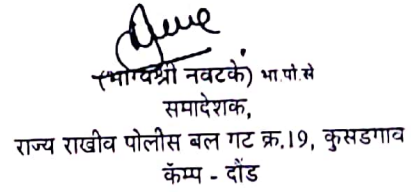 (भाग्यश्री नवटके) भा.पो.से
समादेशक,
राज्य राखीव पोलीस बल गट क्र.19, कुसडगाव
कॅम्प - दौंड